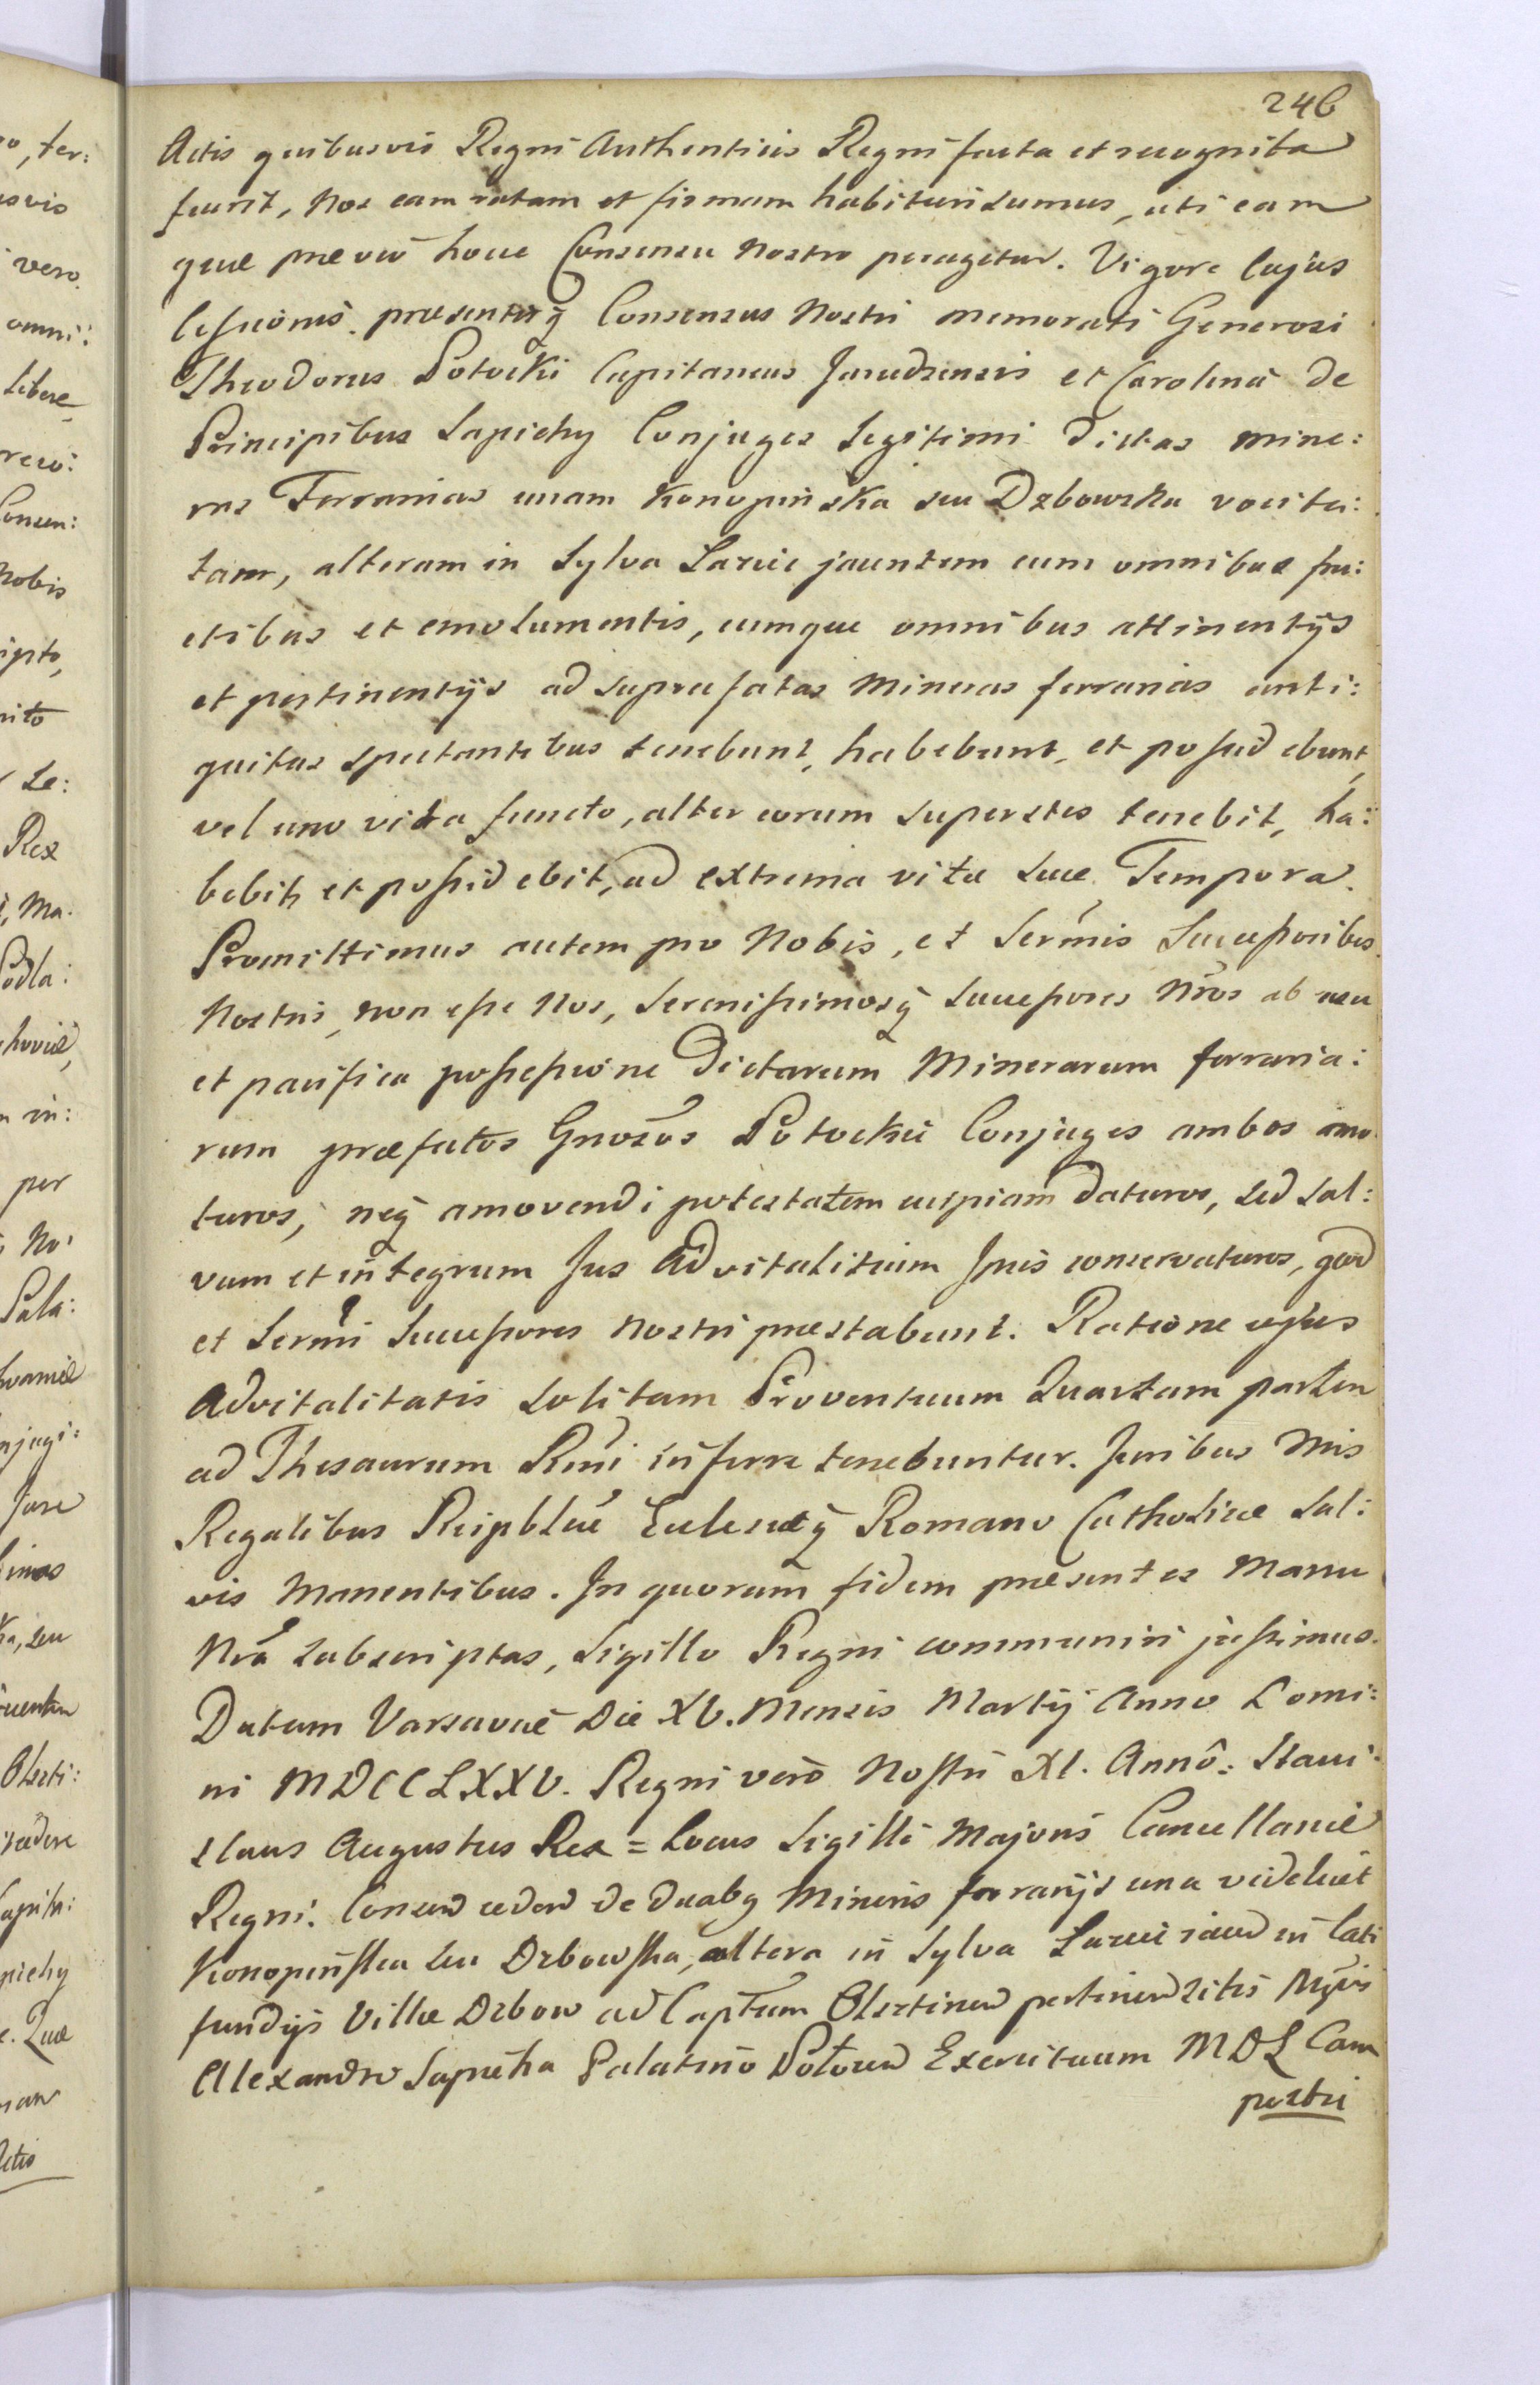 246
Actis quibusvis Regni Authenticis Regni facta et recognita
fuerit, Nos eam ratam et firmam habituri sumus, uti eam
quæ prævio hocce Consensu Nostro peragetur. Vigore cujus
Cessionis, præsentisq Consensus Nostri memorati Generosi
Theodorus Potocki Capitaneus et Carolina de
Principibus Sapiehy Conjuges Legitimi dictas mine:
ras Ferrarias unam Konopińska seu Dzbowska vocita:
tam, alteram in Sylva Łazice jacentem cum omnibus fru:
ctibus et emolumentis, cumque omnibus attinentijs
et pertinentijs ad supra fatas Mineras ferrarias anti:
quitus spectantibus tenebunt, habebunt, et possidebunt,
vel uno vita functo, alter eorum superstes tenebit, ha:
bebit, et possidebit, ad extrema vitæ suæ Tempora.
Promittimus autem pro Nobis, et Sermis Successoribus
Nostris, non esse Nos, Serenissimosq Successores Nros ab usu
et pacifica possessione Dictarum Minerarum ferraria:
rum præfatos Gnosos Potockie Conjuges ambos amo
turos, neq amovendi potestatem cuipiam daturos, sed sal:
vum et integrum Jus Advitalitium Ipsis conservaturos, qod
et Sermi Successores Nostri præstabunt. Ratione cujus
Advitalitatis solitam Proventuum Quartam partem
ad Thesaurum Regni inferre tenebuntur. Juribus Nris
Regalibus Reipblicæ Eclesiæq Romano Catholicæ Sal:
vis Manentibus. In quorum fidem præsentes Manu
Nra Subscriptas, Sigillo Regni communiri jussimus.
Datum Varsaviæ Die XV. Mensis Martij Anno Domi:
ni MDCCLXXV. Regni vero Nostri XI. Annô: Stani:
slaus Augustus Rex = Locus Sigilli Majoris Cancellariæ
Regni. Consens cedend de duabq Mineris ferrarijs una videlicet
Konopińska seu Dzbowska, altera in Sylva Łazice jacend in lati
fundijs Villæ Dzbow ad Captum Olsztinen pertinen sitis Mgcis
Alexandro Sapieha Palatino Polocen Exercituum MDL Cam
pestri